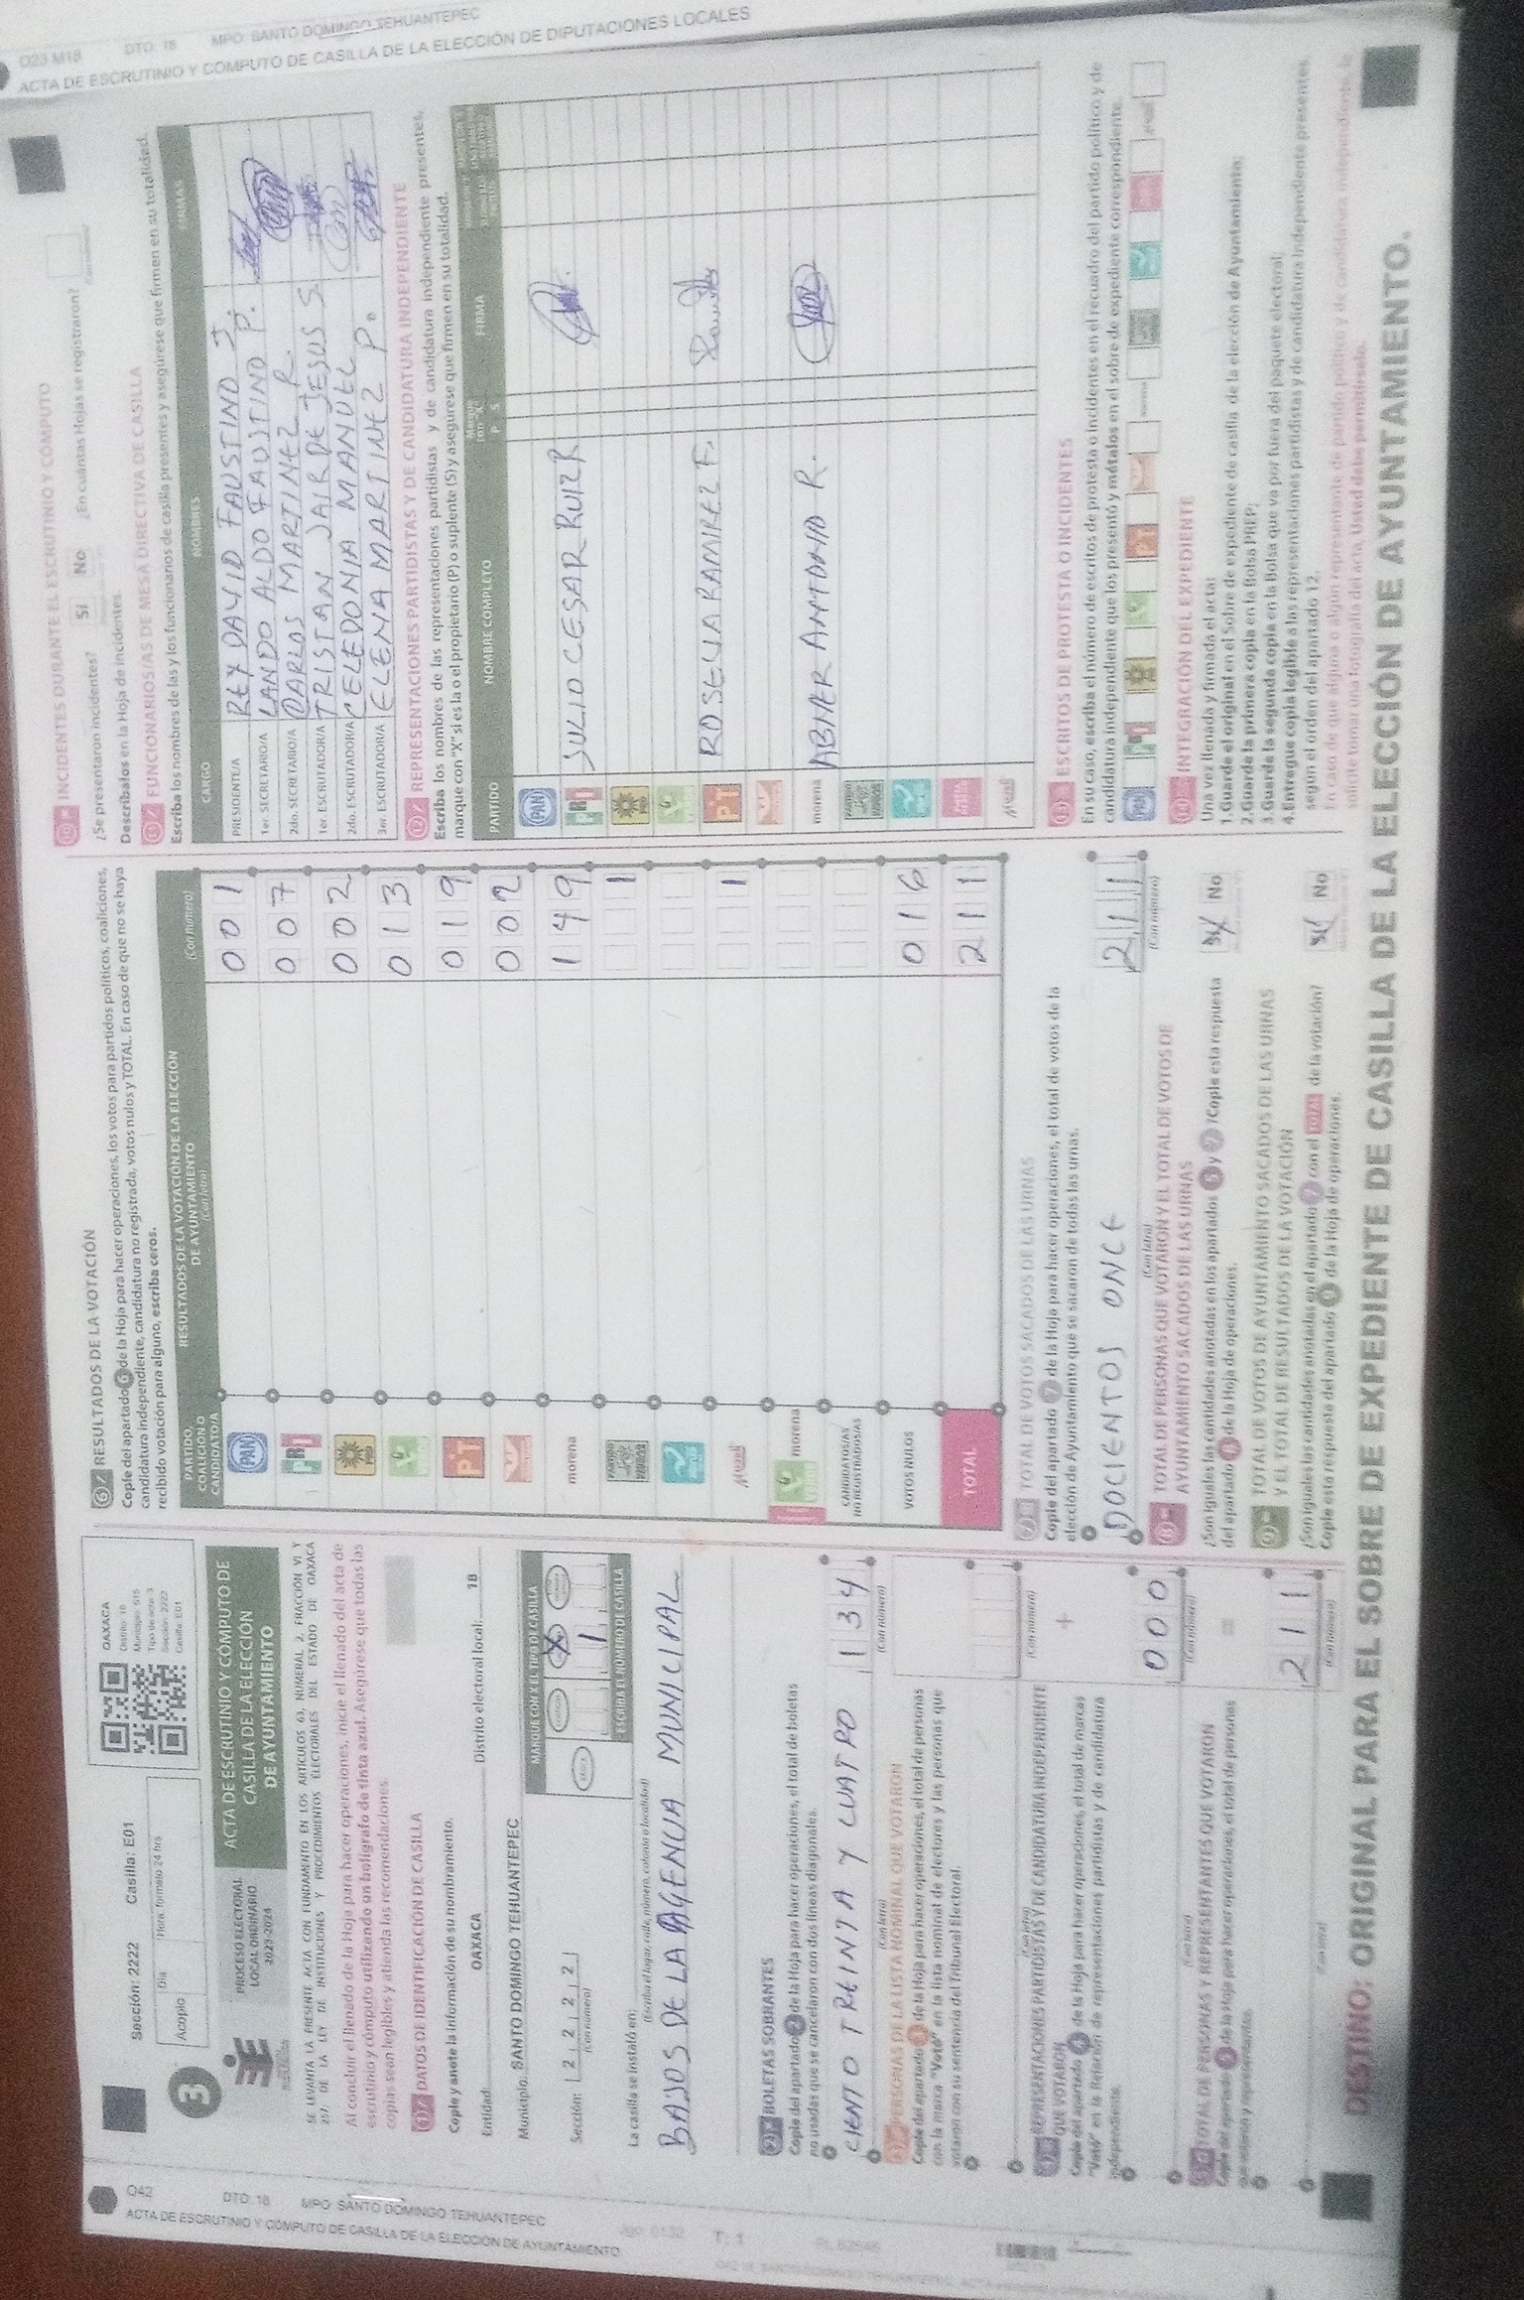 Sección: 2222 Casilla: E01
OAXACA
Distrito: 18
Municipio: 515
Tipo de acta: 3
Sección: 2222
Casilla: E01
3
Acopio
Día
Hora: formato 24 hrs
PROCESO ELECTORAL
LOCAL ORDINARIO
2023-2024
ACTA DE ESCRUTINIO Y CÓMPUTO DE
CASILLA DE LA ELECCIÓN
DE AYUNTAMIENTO
SE LEVANTA LA PRESENTE ACTA CON FUNDAMENTO EN LOS ARTÍCULOS 63, NUMERAL 2, FRACCIÓN VI Y
257 DE LA LEY DE INSTITUCIONES Y PROCEDIMIENTOS ELECTORALES DEL ESTADO DE OAXACA
Al concluir el llenado de la Hoja para hacer operaciones, inicie el llenado del acta de
escrutinio y cómputo utilizando un bolígrafo de tinta azul. Asegúrese que todas las
copias sean legibles y atienda las recomendaciones.
1 DATOS DE IDENTIFICACIÓN DE CASILLA
Copie y anote la información de su nombramiento.
Entidad: OAXACA Distrito electoral local: 18
Municipio: SANTO DOMINGO TEHUANTEPEC
Sección: 2 2 2 2
(Con número)
MARQUE CON X EL TIPO DE CASILLA
X
1
ESCRIBA EL NÚMERO DE CASILLA
La casilla se instaló en:
(Escriba el lugar, calle, número, colonia o localidad)
BAJOS DE LA AGENCIA MUNICIPAL
2 BOLETAS SOBRANTES
Copie del apartado de la Hoja para hacer operaciones, el total de boletas
no usadas que se cancelaron con dos líneas diagonales.
CIENTO TREINTA Y CUATRO 134
(Con letra) (Con número)
3 PERSONAS DE LA LISTA NOMINAL QUE VOTARON
Copie del apartado de la Hoja para hacer operaciones, el total de personas
con la marca "Votó" en la lista nominal de electores y las personas que
votaron con su sentencia del Tribunal Electoral.
(Con letra) (Con número)
REPRESENTACIONES PARTIDISTAS Y DE CANDIDATURA INDEPENDIENTE
QUE VOTARON
Copie del apartado de la Hoja para hacer operaciones, el total de marcas
"Votó" en la Relación de representaciones partidistas y de candidatura
independiente.
+
000
(Con letra) (Con número)
TOTAL DE PERSONAS Y REPRESENTANTES QUE VOTARON
Copie del apartado de la Hoja para hacer operaciones, el total de personas
que votaron y representantes.
=
211
(Con letra) (Con número)
6 RESULTADOS DE LA VOTACIÓN
Copie del apartado 6 de la Hoja para hacer operaciones, los votos para partidos políticos, coaliciones,
candidatura independiente, candidatura no registrada, votos nulos y TOTAL. En caso de que no se haya
recibido votación para alguno, escriba ceros.
PARTIDO,
COALICIÓN O
CANDIDATO/A
RESULTADOS DE LA VOTACIÓN DE LA ELECCIÓN
DE AYUNTAMIENTO
(Con letra)
(Con número)
PAN 001
PRI 007
PRD 002
013
PT 019
002
morena 149
1
MUJER 1
morena
CANDIDATOS/AS
NO REGISTRADOS/AS
VOTOS NULOS 016
TOTAL 211
7 TOTAL DE VOTOS SACADOS DE LAS URNAS
Copie del apartado 7 de la Hoja para hacer operaciones, el total de votos de la
elección de Ayuntamiento que se sacaron de todas las urnas.
DOCIENTOS ONCE 211
(Con letra) (Con número)
8 TOTAL DE PERSONAS QUE VOTARON Y EL TOTAL DE VOTOS DE
AYUNTAMIENTO SACADOS DE LAS URNAS
¿Son iguales las cantidades anotadas en los apartados 5 y 7? Copie esta respuesta
del apartado 8 de la Hoja de operaciones.
No
9 TOTAL DE VOTOS DE AYUNTAMIENTO SACADOS DE LAS URNAS
Y EL TOTAL DE RESULTADOS DE LA VOTACIÓN
¿Son iguales las cantidades anotadas en el apartado 7 con el TOTAL de la votación?
Copie esta respuesta del apartado 9 de la Hoja de operaciones.
No
10 INCIDENTES DURANTE EL ESCRUTINIO Y CÓMPUTO
¿Se presentaron incidentes? Sí No ¿En cuántas Hojas se registraron?
Descríbalos en la Hoja de incidentes
11 FUNCIONARIOS/AS DE MESA DIRECTIVA DE CASILLA
Escriba los nombres de las y los funcionarios de casilla presentes y asegúrese que firmen en su totalidad.
CARGO NOMBRES FIRMAS
PRESIDENTE/A REY DAVID FAUSTINO J.
1er. SECRETARIO/A LANDO ALDO FAUSTINO P.
2do. SECRETARIO/A CARLOS MARTINEZ R.
1er. ESCRUTADOR/A TRISTAN JAIR DE JESUS S
2do. ESCRUTADOR/A CELEDONIA MANUEL
3er. ESCRUTADOR/A ELENA MARTINEZ P.
12 REPRESENTACIONES PARTIDISTAS Y DE CANDIDATURA INDEPENDIENTE
Escriba los nombres de las representaciones partidistas y de candidatura independiente presentes,
marque con "X" si es la o el propietario (P) o suplente (S) y asegúrese que firmen en su totalidad.
PARTIDO NOMBRE COMPLETO P S FIRMA
PAN
PRI JULIO CESAR RUIZ R
PRD
PT ROSELIA RAMIREZ F.
morena ABNER ANTONIO R.
MUJER
13 ESCRITOS DE PROTESTA O INCIDENTES
En su caso, escriba el número de escritos de protesta o incidentes en el recuadro del partido político y de
candidatura independiente que los presentó y métalos en el sobre de expediente correspondiente.
PAN PRI PT
14 INTEGRACIÓN DEL EXPEDIENTE
Una vez llenada y firmada el acta:
1.Guarde el original en el Sobre de expediente de casilla de la elección de Ayuntamiento;
2.Guarde la primera copia en la Bolsa PREP;
3.Guarde la segunda copia en la Bolsa que va por fuera del paquete electoral;
4.Entregue copia legible a las representaciones partidistas y de candidatura independiente presentes,
según el orden del apartado 12.
En caso de que alguna o algún representante de partido político y de candidatura independiente, le
solicite tomar una fotografía del acta, Usted debe permitírselo.
DESTINO: ORIGINAL PARA EL SOBRE DE EXPEDIENTE DE CASILLA DE LA ELECCIÓN DE AYUNTAMIENTO.
O42 DTO: 18 MPO: SANTO DOMINGO TEHUANTEPEC
ACTA DE ESCRUTINIO Y CÓMPUTO DE CASILLA DE LA ELECCIÓN DE AYUNTAMIENTO
T: 1
O23 M18 DTO: 18 MPO: SANTO DOMINGO TEHUANTEPEC
ACTA DE ESCRUTINIO Y CÓMPUTO DE CASILLA DE LA ELECCIÓN DE DIPUTACIONES LOCALES